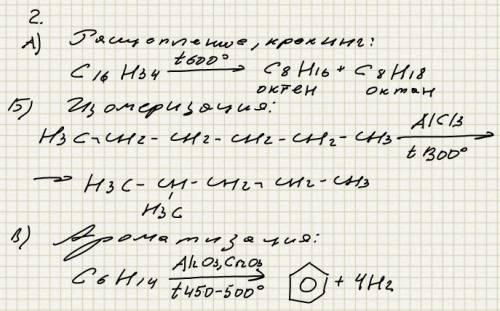 2.
А) Расщепление, крекинг:
C16H34 t600° → C8H16 + C8H18
октен октан
Б) Изомеризация:
H3C-CH2-CH2-CH2-CH2-CH3 AlCl3 t300° →
→ H3C-CH-CH2-CH2-CH3
H3C
В) Ароматизация:
C6H14 Al2O3, Cr2O3 t450-500° → + 4H2